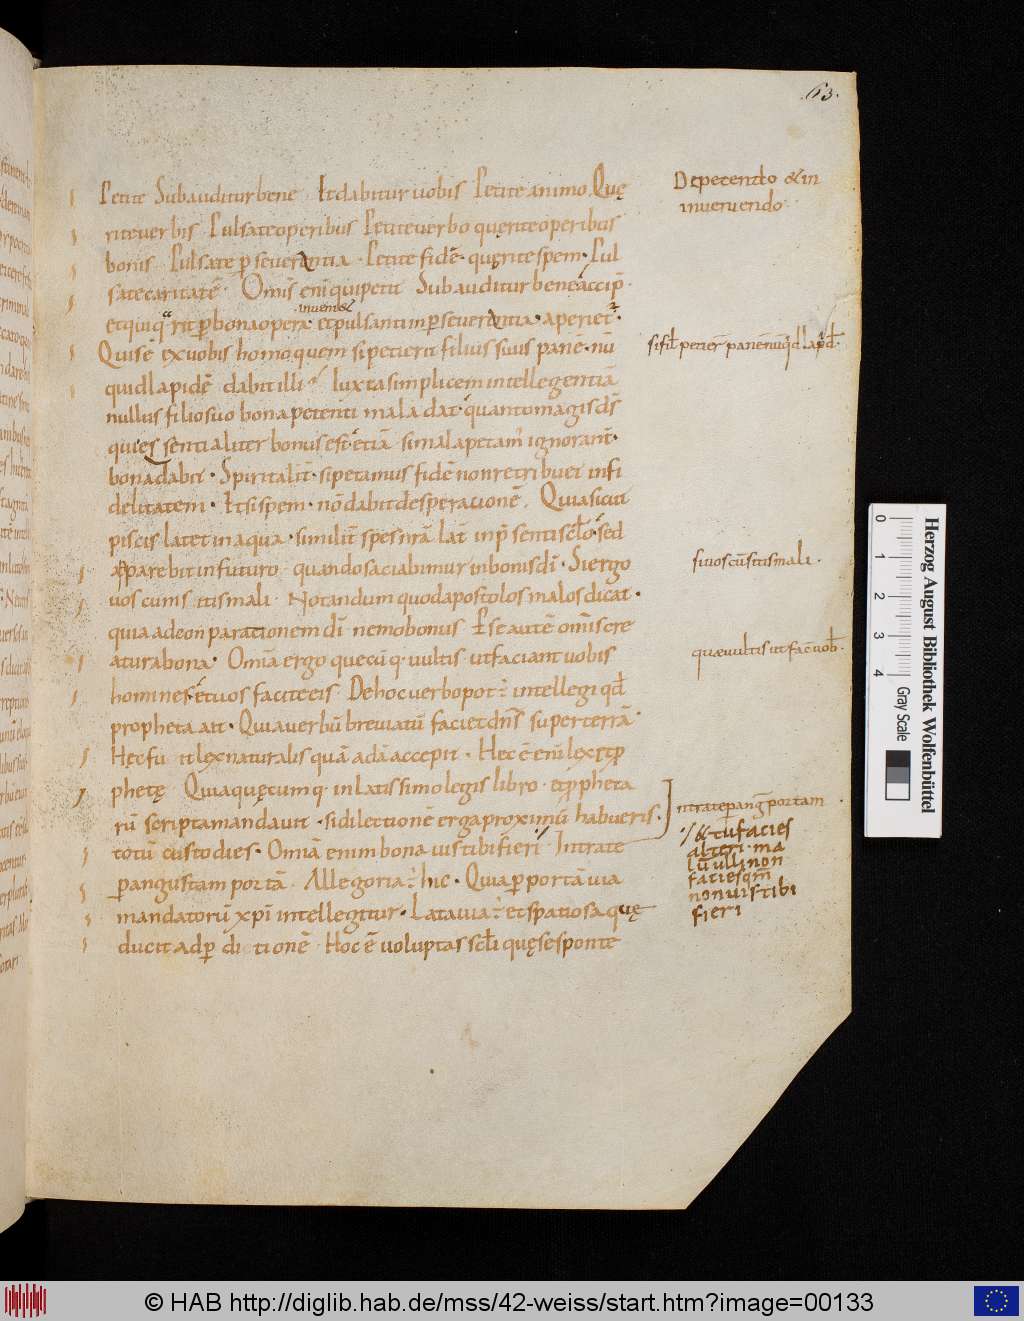 63.
Petite Subauditur bene . Et dabitur uobis Petite animo. Quę
rite uerbis Pulsate operibus Petite uerbo quęrite operibus
bonis Pulsate p̱ seuerantia . Petite fidē . quęrite spem . Pul
sate caritatē . Omis enī qui petit Subauditur bene accip̄ .
inueniet
et qui quęrit p̱ bona opera et pulsanti in p̱seuerantia . aperiet̄ .
Quis ē ex uobis homo quem si petierit filius suus panē . nū
quid lapidē dabit illi Iuxta simplicem intellegentiā
nullus filio suo bona petenti mala dat . quanto magis d̄s
qui essentialiter bonus est etiā . si mala petam᾽ ignorant̄ .
bona dabit . Spiritalit̄ . si petamus fidē non retribuet infi
delitatem . Et si spem . nō dabit desperationē . Quia sicut
piscis latet in aqua . similit̄ spes nr̄ā lat̄ in p̄senti sclō . sed
apparebit in futuro quando saciabimur in bonis dī . Si ergo
uos cum sitis mali . Notandum quod apostolos malos dicat .
quia ad conparationem dī nemo bonus Per se autē om̄is cre
atura bona . Omīa ergo quecūq . uultis ut faciant uobis
homines . et uos facite eis . De hoc uerbo pot᾽ ÷ intellegi qd̄
propheta ait . Quia uerbū breuiatū faciet dn̄s super terrā .
Hęc fuit lex naturalis quā adā accepit . Hec ē enī lex et p̱
phetę Quia quęcumq . in latissimo legis libro . et p̱pheta
rū scripta mandauit . si dilectionē erga proximū habueris .
totū custodies . Omīa enim bona uis tibi fieri Intrate
p̱ angustam portā Allegoria ÷ hic . Quia p̱ portā uia
mandatorū xp̄i intellegitur . Lata uia ÷ et spatiosa quę
ducit ad p̱ditionē . Hoc ē uoluptas scl̄i quę se sponte
De petendo & in
inueniendo
si fil̄ petier̄ panē nūqd̄ lapd̄ .
si uos cū sitis mali .
quæ uultis ut fac̄ uob̄ .
Intrate p̱ anḡ portam .
& tu facies
alteri . ma
lū ulli non
facies qm̄
non uis tibi
fieri
Herzog August Bibliothek Wolfenbüttel
0 1 2 3 4
Gray Scale
© HAB http://diglib.hab.de/mss/42-weiss/start.htm?image=00133